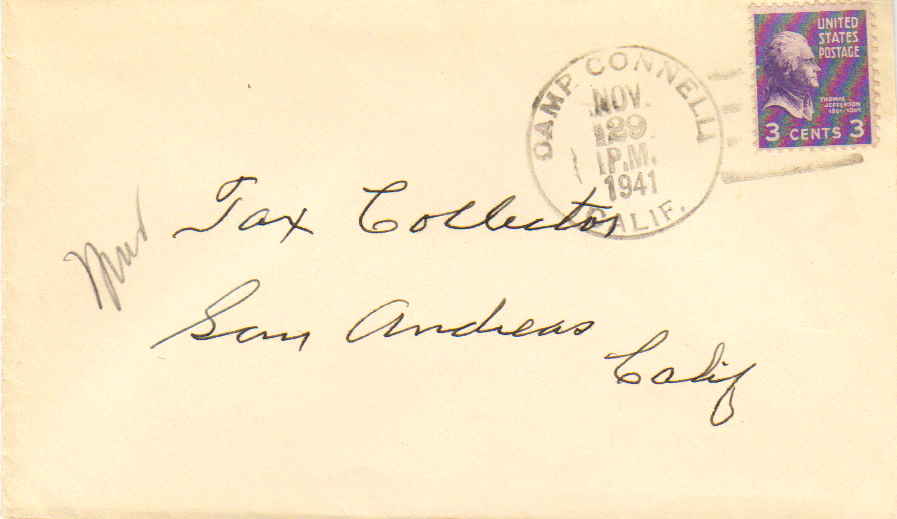 UNITED
STATES
POSTAGE
THOMAS
JEFFERSON
1801-1809
3 CENTS 3
CAMP CONNELL
NOV.
29
P.M.
1941
CALIF.
Tax Collector
San Andreas
Calif